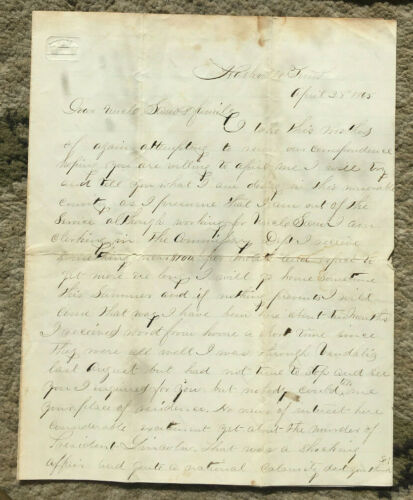 Nashville Tenn
April 28 1865
Dear Uncle & family
I take this method
of again attempting to our correspondence
hoping you are willing to me I will try
and tell you what I am doing in this miserable
country as I presume that I am out of the
Service although working for Uncle Sam I am
clerking in the Commissary Dept I receive
something near for month and expect to
get more ere long I will go home sometime
this Summer and if nothing prevents I will
come that way I have been here about two months
I received word from home a short time since
They were all well I was through Vandalia
last August but had not time to stop and see
you I inquired for you but nobody could tell me
your place of residence No news of interest here
considerable excitement yet about the murder of
President Lincoln That was a shocking
affair and quite a national calamity dont you think
so